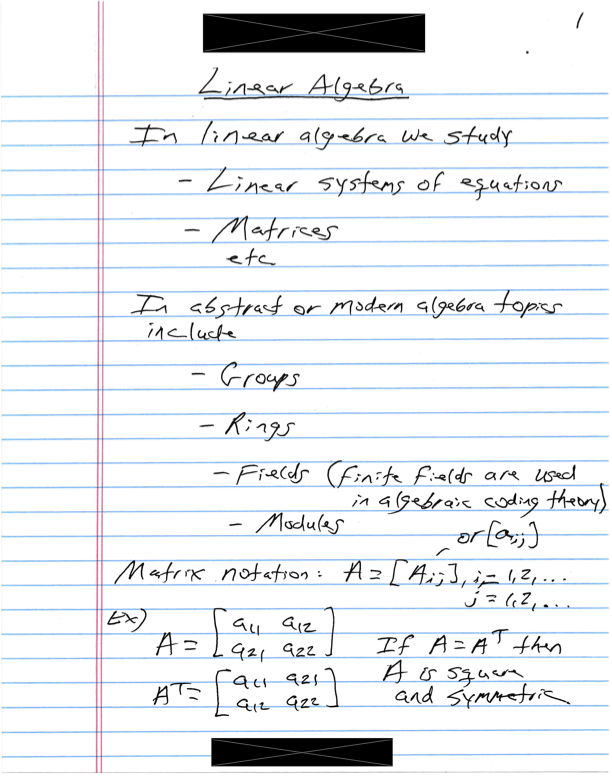 1
Linear Algebra
In linear algebra we study
- Linear systems of equations
- Matrices
etc
In abstract or modern algebra topics
include
- Groups
- Rings
- Fields (finite fields are used
in algebraic coding theory)
- Modules
or [aij]
Matrix notation: A = [Aij], i = 1,2,...
j = 1,2,...
Ex)
A = [a11 a12
a21 a22]
If A = A^T then
A is square
and symmetric
A^T = [a11 a21
a12 a22]